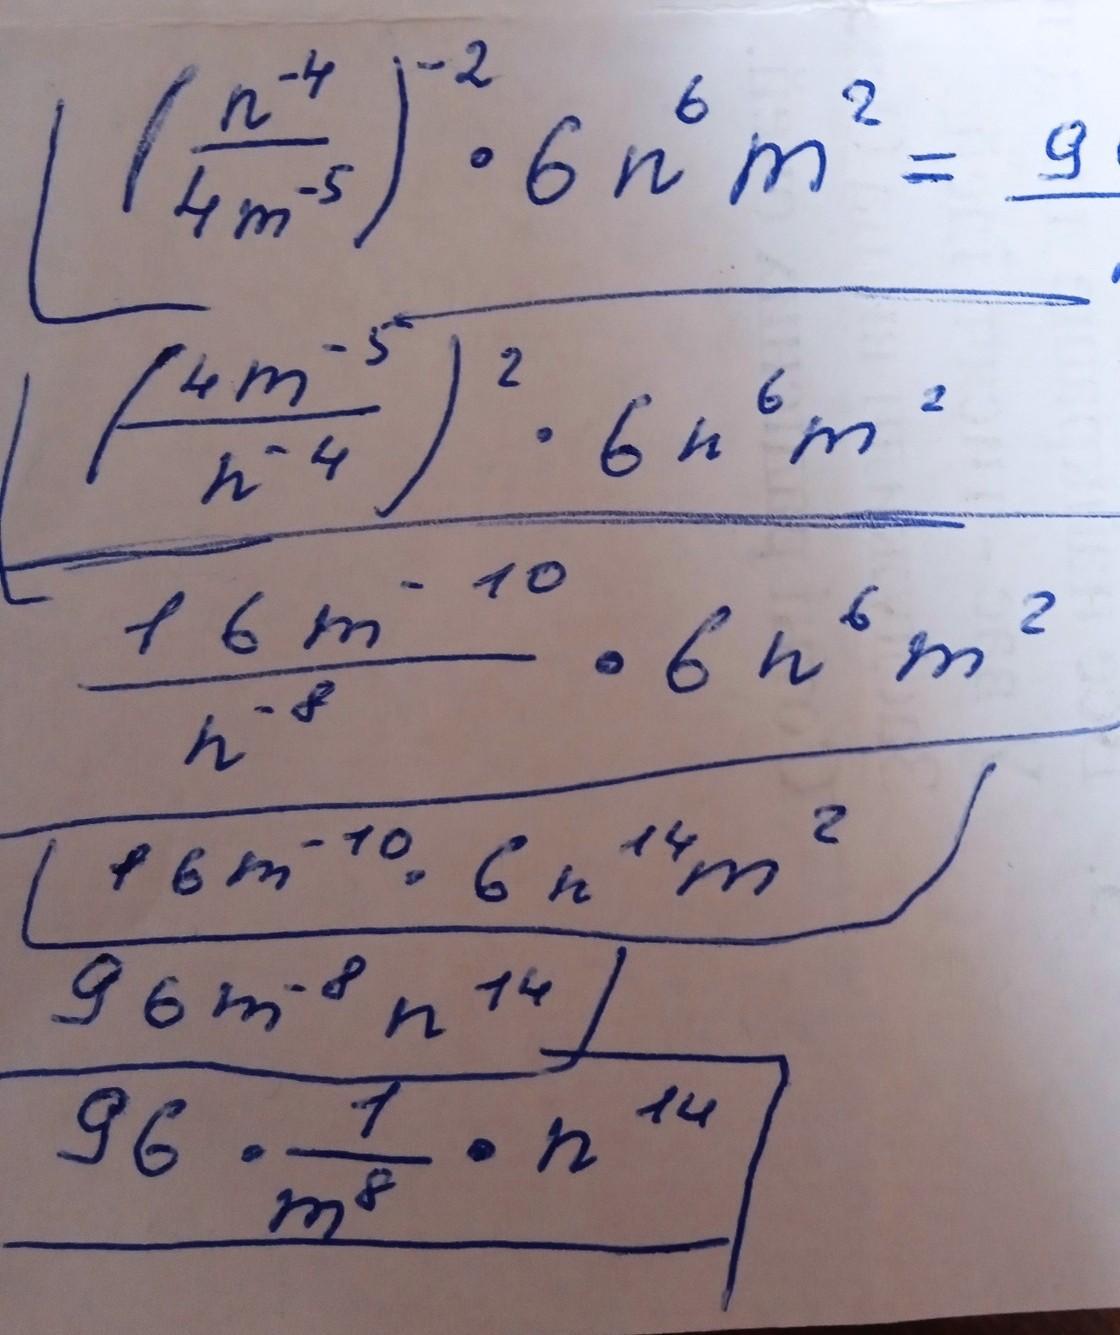 (n⁻⁴/4m⁻⁵)⁻² · 6n⁶m² = 9
(4m⁻⁵/n⁻⁴)² · 6n⁶m²
16m⁻¹⁰/n⁻⁸ · 6n⁶m²
16m⁻¹⁰ · 6n¹⁴m²
96m⁻⁸n¹⁴
96 · 1/m⁸ · n¹⁴